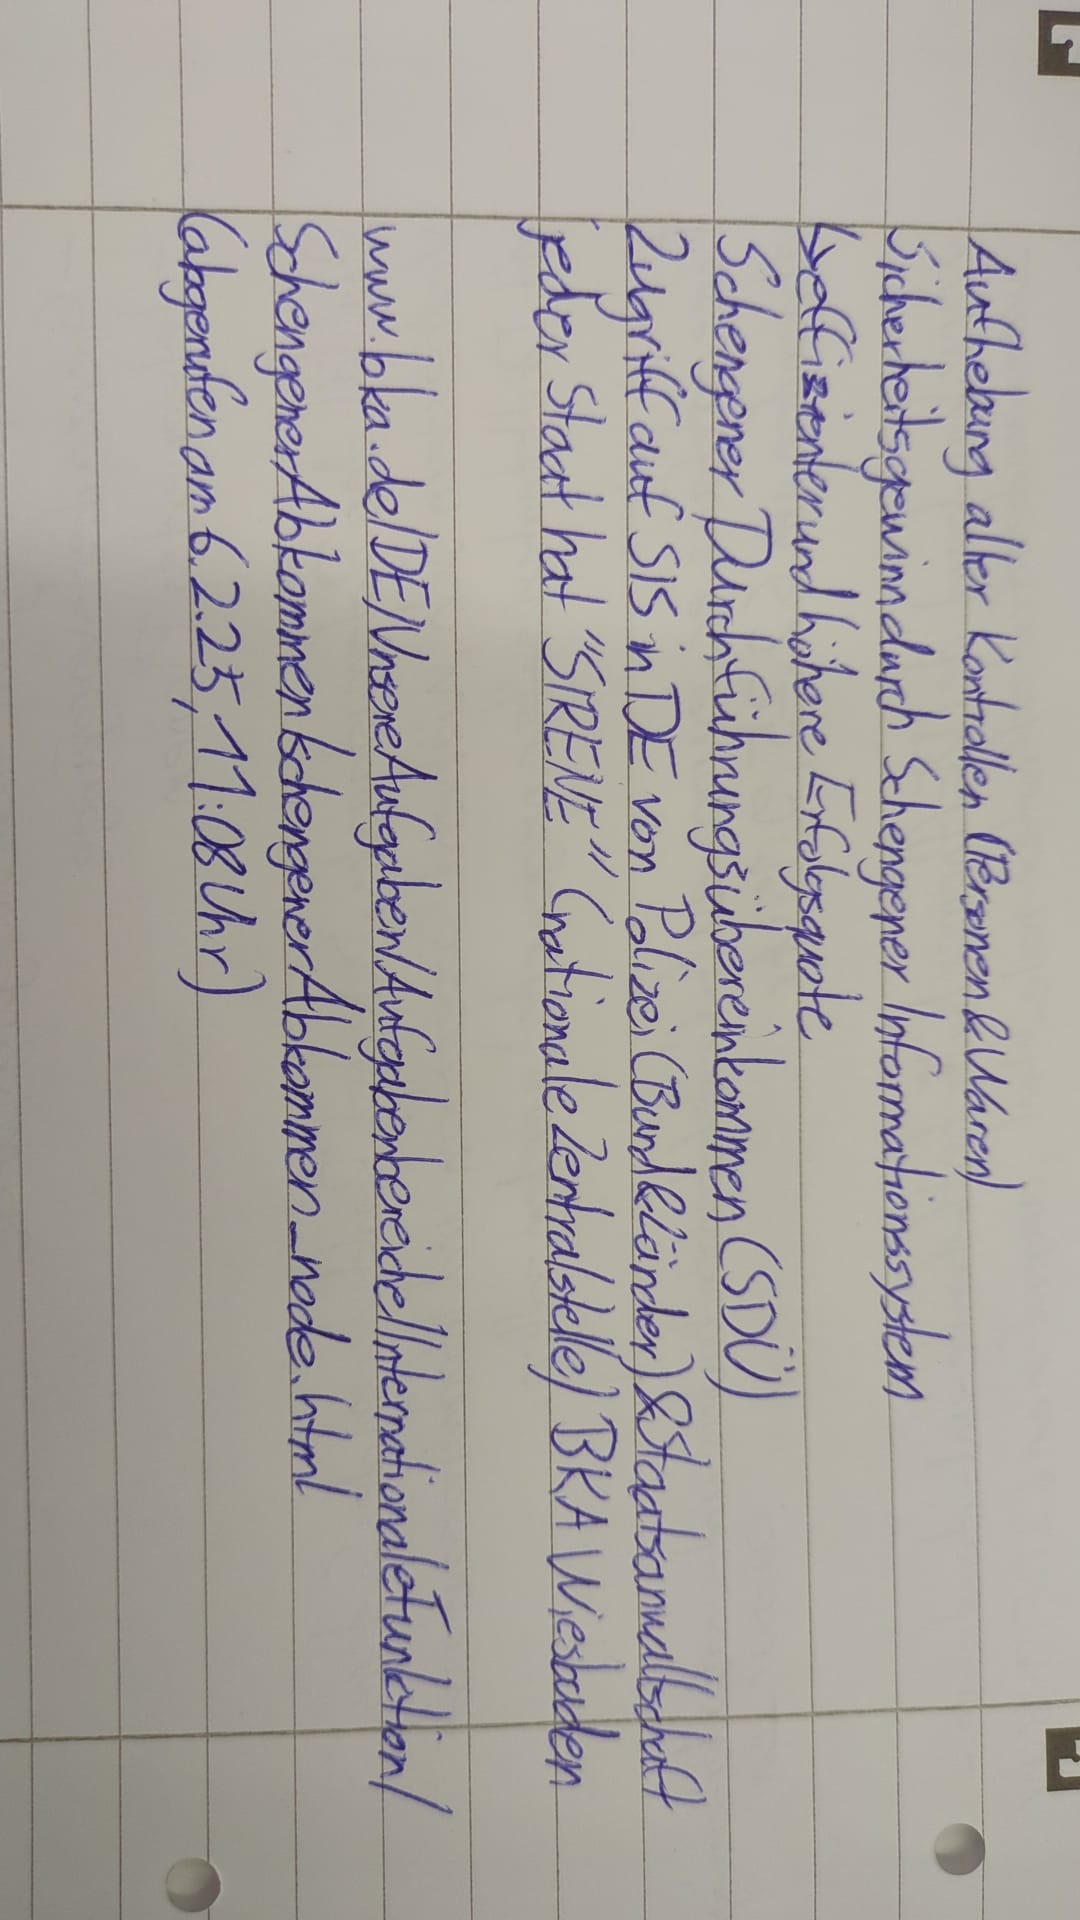 Aufhebung aller Kontrollen (Personen & Waren)
Sicherheitsgewinn durch Schengener Informationssystem
↳ effizienter und höhere Erfolgsquote
Schengener Durchführungsübereinkommen (SDÜ)
Zugriff auf SIS in DE von Polizei (Bund & Länder) & Staatsanwaltschaft
jeder Staat hat "SIRENE" (nationale Zentralstelle) BKA Wiesbaden
www.bka.de/DE/UnsereAufgaben/Aufgabenbereiche/InternationaleFunktion/
SchengenerAbkommen/schengenerAbkommen_node.html
(abgerufen am 6.2.25, 11:08 Uhr)